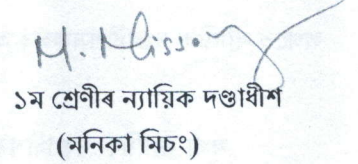 M. Missong
১ম শ্ৰেণীৰ ন্যায়িক দণ্ডাধীশ
(মনিকা মিচং)